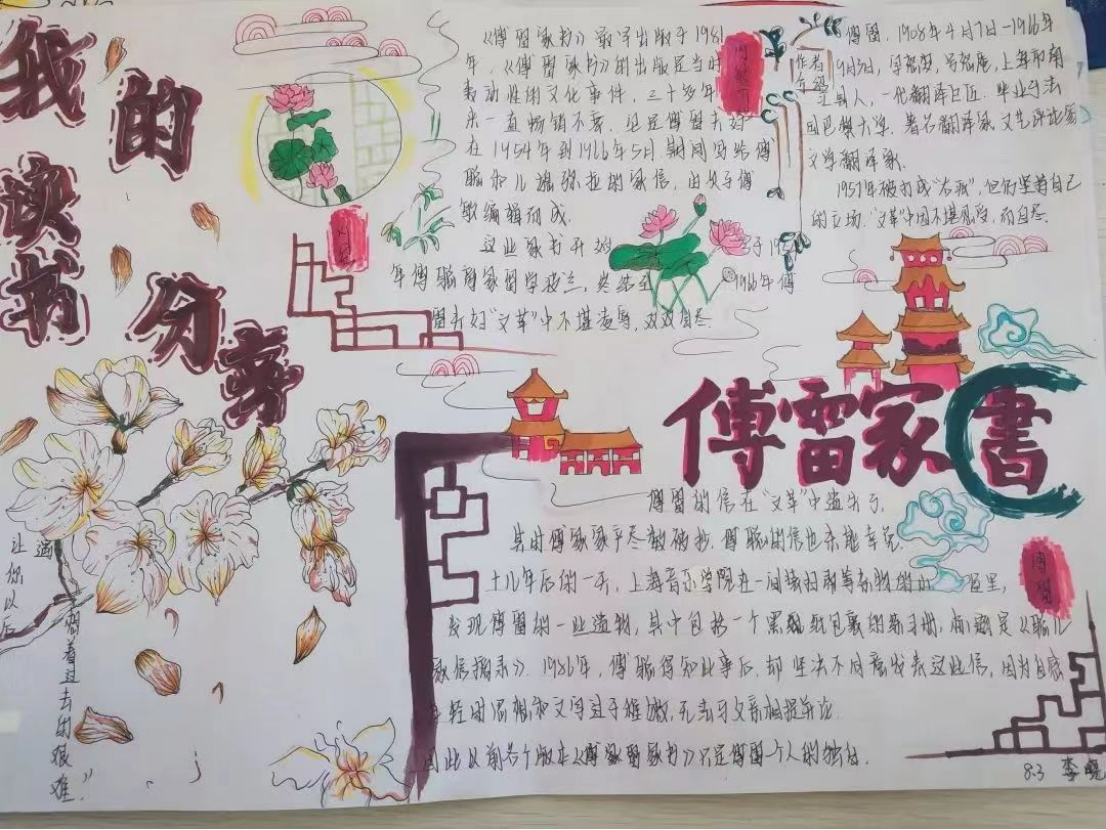 我的读书分享
《傅雷家书》最早出版于1981
年,《傅雷家书》的出版是当时
轰动性的文化事件,三十多年
来一直畅销不衰。它是傅雷夫妇
在1954年到1966年5月期间写给傅
聪和儿媳弥拉的家信,由次子傅
敏编辑而成。
这些家书开始
于19
年傅聪离家留学波兰,终结至
1966年傅
雷夫妇"文革"中不堪凌辱,双双自尽.
作者
介绍
傅雷,1908年4月7日-1966年
9月3日,字怒安,号怒庵,上海市南
汇县人,一代翻译巨匠.毕业于法
国巴黎大学.著名翻译家 文艺评论家
文学翻译家.
1957年被打成"右派",但仍坚持自己
的立场."文革"中因不堪,而自尽.
傅雷家書
傅雷的信在"文革"中遗失了,
其时傅家家产尽数被抄.傅聪的信也未能幸免.
十几年后的一天,上海音乐学院在一间堆的
里,
发现傅雷的一些遗物,其中包括一个黑纸包裹的练习册,《聪儿
家信摘录》.1986年,傅聪得知此事后,却坚决不同意发表这些信,因为自感
年轻时思想和文字过于稚嫩,无法与父亲相提并论.
因此以前各个版本《傅雷家书》只是傅雷个人的独白.
傅雷
让你以后
看过去的艰难"
8.3 李晓